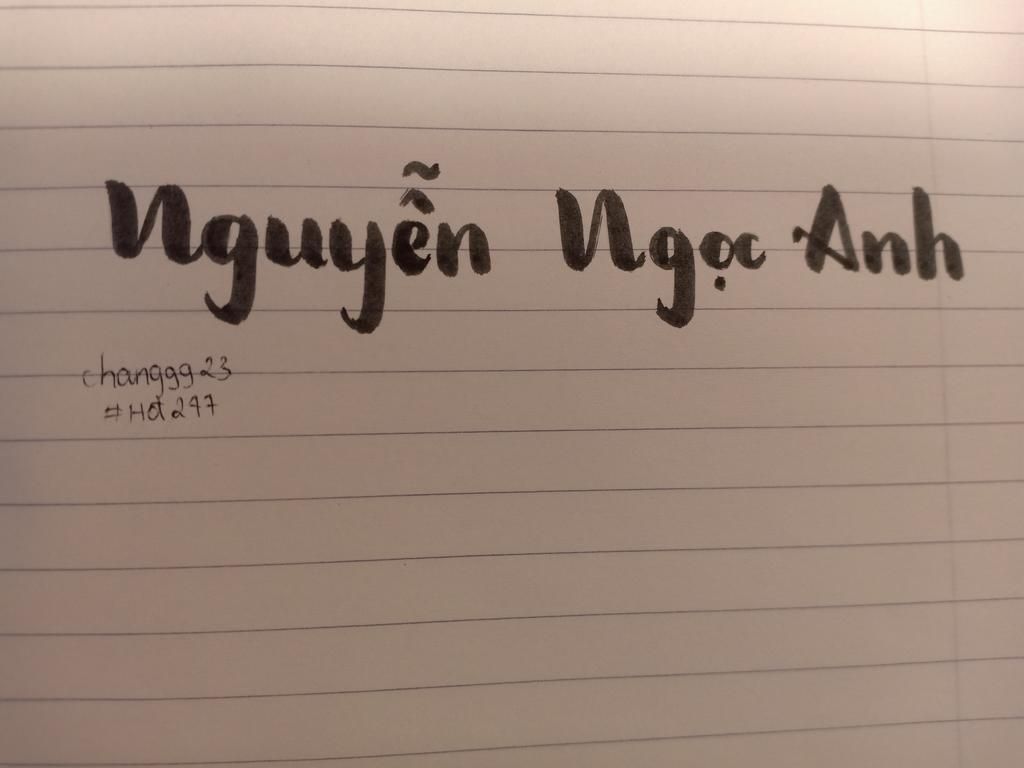 Nguyễn Ngọc Anh
changgg23
#Hđ247